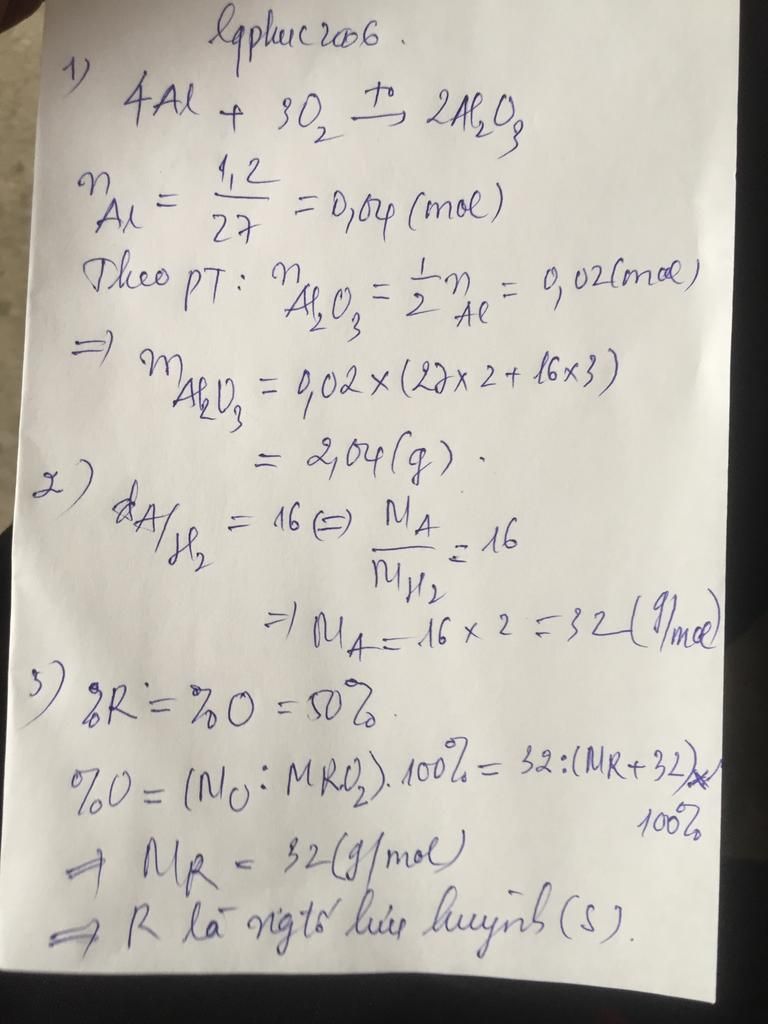 lqphuc2006.
1)
4Al + 3O₂ →(t°) 2Al₂O₃
n_Al = 1,2/27 = 0,04 (mol)
Theo PT: n_Al₂O₃ = 1/2 n_Al = 0,02 (mol)
=> m_Al₂O₃ = 0,02 × (27 × 2 + 16 × 3)
= 2,04 (g).
2) d_A/H₂ = 16 (=) M_A/M_H₂ = 16
=> M_A = 16 × 2 = 32 (g/mol)
3) %R = %O = 50%.
%O = (MO : MRO₂). 100% = 32 : (MR + 32) ×
100%
=> MR = 32 (g/mol)
=> R là ngtố lưu huỳnh (S).